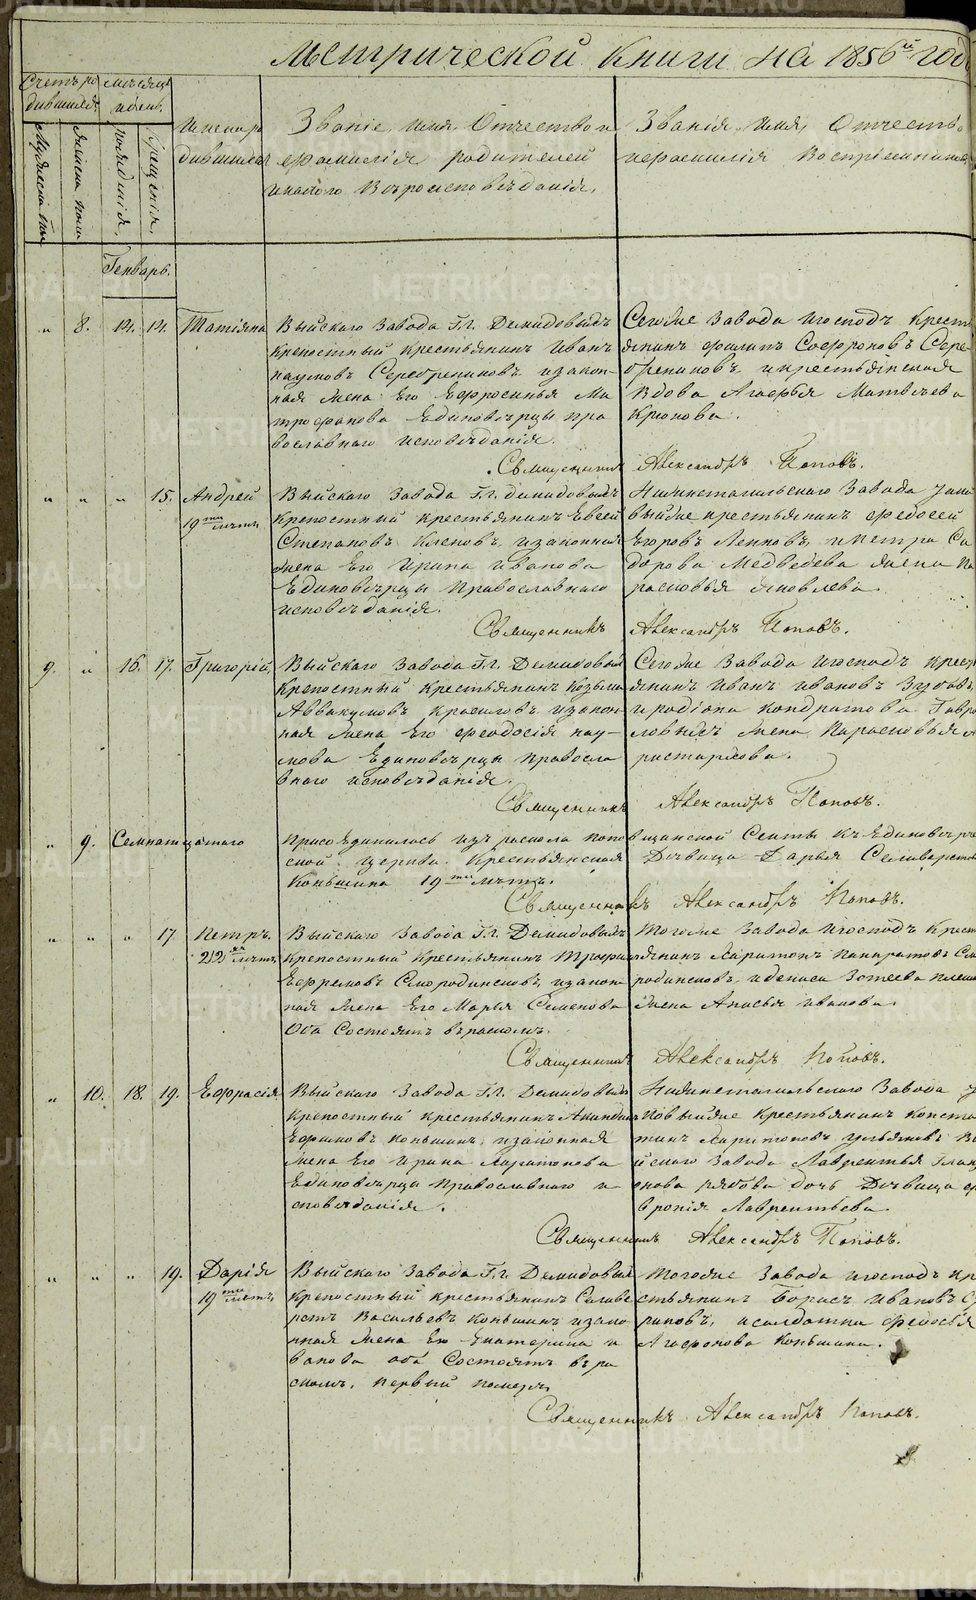 Метрической книги на 1856й год
Счетъ ро
дившихся.
Мужеска пола
Женска пола
месяцъ
и день.
рожденія,
крещенія,
Имена ро
дившихся
Званіе, имя, Отчество и
фамилія родителей
и какого Вѣроисповѣданія,
Званія, имя, Отчество
и фамилія Воспріемниковъ
Генварь.
„ 8. 14. 14. Татіяна
Выйскаго завода Гг. Демидовыхъ
крепостный крестьянинъ Иванъ
наумовъ Серебрениковъ и закон-
ная жена Его Ефросинья Ми
трофанова Единовѣрцы пра
вославнаго исповѣданія.
Сегоже завода и господъ Крест
янинъ филипъ Софроновъ Сере
бренниковъ, и крестьянская
Вдова Агафья Матвѣева
Крюкова.
Священникъ Александръ Поповъ.
„ „ „ 15. Андрей
19ти лѣтъ
Выйскаго Завода Гг. Демидовыхъ
Крепостный крестьянинъ Евсей
Степановъ Клеповъ, и законная
жена Его Ирина иванова
Единовѣрцы Православнаго
исповѣданія.
Нижнетагильскаго Завода
крестьянинъ федосей
Егоровъ и петра Си
дорова Медведева жена Па
расковья яковлева.
Священникъ Александръ Поповъ.
9. „ 16. 17. Григорій,
Выйскаго Завода Гг. Демидовыхъ
Крепостный Крестьянинъ Козьма
Аввакумовъ Красиловъ и закон-
ная жена Его феодосія нау-
мова Единовѣрцы правосла
внаго исповѣданія.
Сегоже Завода и господъ Крест
янинъ Иванъ ивановъ Зубовъ,
и родіона кондратова Гаври
ловыхъ жена Парасковья А
ристархова.
Священникъ Александръ Поповъ.
„ 9. Семнатцатаго Присоединилась изъ раскола поповщинской Секты къ Единовѣрче
ской церкви Крестьянская Дѣвица Дарья Селиверстова
Коньшина 19ти лѣтъ.
Священникъ Александръ Поповъ.
„ „ „ 17 Петръ.
22хъ лѣтъ
Выйскаго Завода Гг. Демидовыхъ
крепостный Крестьянинъ Трофимъ
Ефремовъ Смородинсковъ, и закон-
ная жена Его Марья Семенова
Оба Состоятъ въ расколѣ.
Тогоже Завода и господъ Крест
янинъ Харитонъ Панкратовъ См
родинсковъ, и дениса Зотеева
жена Анисья иванова.
Священникъ Александръ Поповъ.
„ 10. 18. 19. Ефрасія
Выйскаго Завода Гг. Демидовыхъ
Крепостный крестьянинъ Акиндинъ
Ефимовъ коньшинъ, и законная
жена Его Ирина Харитонова
Единовѣрцы Православнаго и-
сповѣданія.
Нижнетагильскаго Завода
Крестьянинъ Конста
тинъ Харитоновъ ульяновъ Вы
йскаго Завода Лаврентья
рябова дочь Дѣвица ф
вронія Лаврентьева.
Священникъ Александръ Поповъ.
„ „ „ 19. Дарія
19ти лѣтъ
Выйскаго Завода Гг. Демидовыхъ
крепостный крестьянинъ Селиве
рстъ Васильевъ Коньшинъ и зако
нная жена Его Екатерина и
ванова оба Состоятъ въ ра
сколѣ, первый померъ.
Тогоже Завода и господъ кр
стьянинъ Борисъ Ивановъ
риковъ, и солдатка федосья
Агафонова Коньшина.
Священникъ Александръ Поповъ.
METRIKI.GASO-URAL.RU